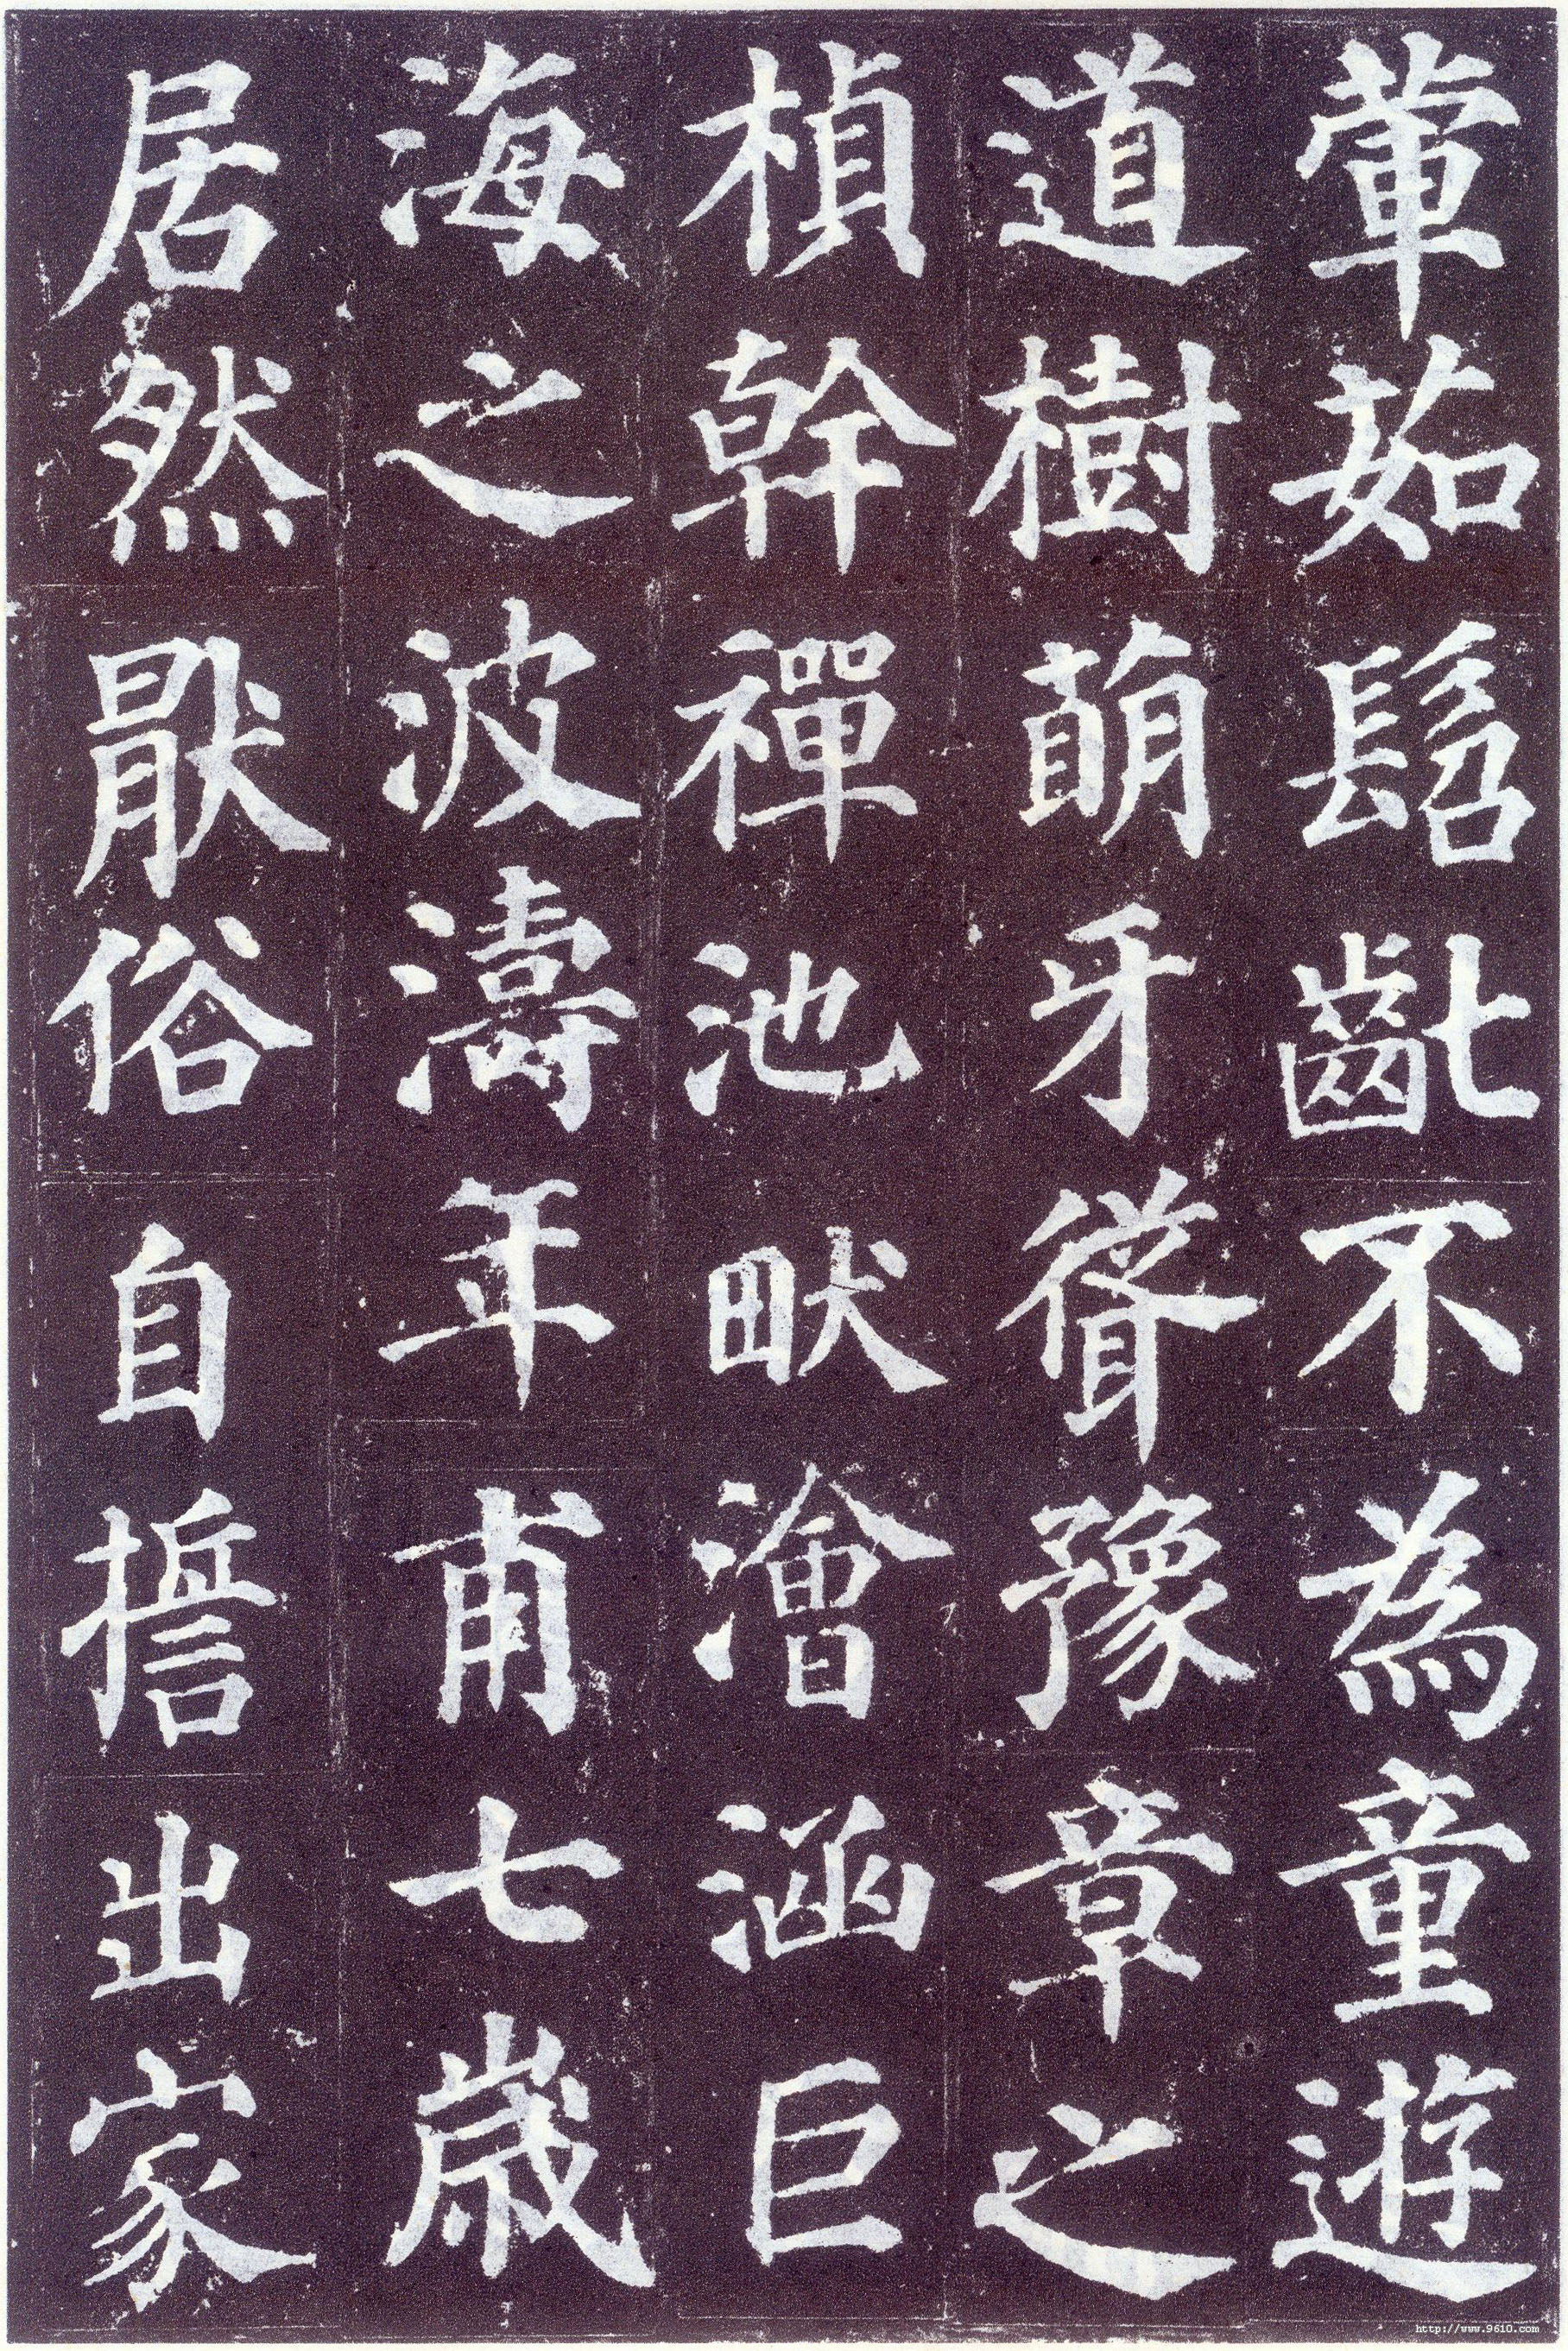 葷茹髫齔不為童遊
道樹萌牙聳豫章之
楨幹禪池畎澮涵巨
海之波濤年甫七歲
居然猒俗自誓出家
http://www.9610.com